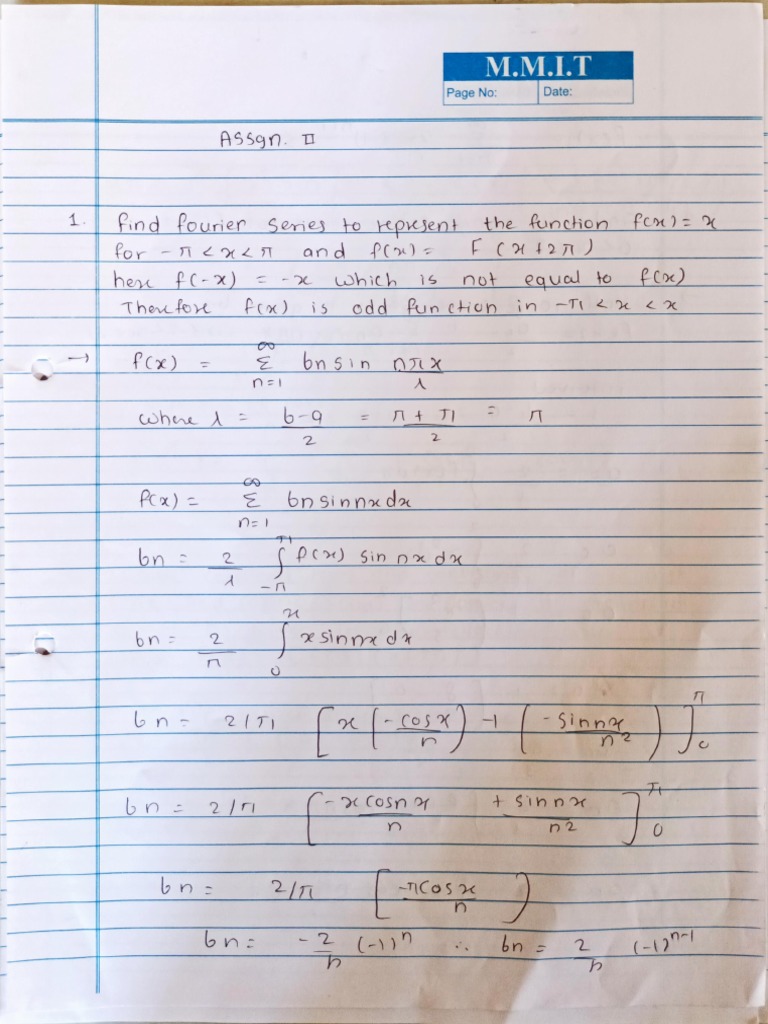 M.M.I.T
Page No: Date:
Assgn. II
1. find fourier series to represent the function f(x) = x
for -π < x < π and f(x) = F (x+2π)
here f(-x) = -x which is not equal to f(x)
Therefore f(x) is odd function in -π < x < x
→ f(x) = ∞ Σ n=1 bn sin nπx / λ
where λ = b-a / 2 = π + π / 2 = π
f(x) = ∞ Σ n=1 bn sin nx dx
bn = 2 / λ ∫ π -π f(x) sin nx dx
bn = 2 / π ∫ x 0 x sin nx dx
bn = 2/π [ x ( -cosx / n ) -1 ( -sinnx / n2 ) ] π 0
bn = 2/π [ -x cosnx / n + sinnx / n2 ] π 0
bn = 2/π [ -πcosx / n )
bn = -2/n (-1)^n ∴ bn = 2/n (-1)^n-1